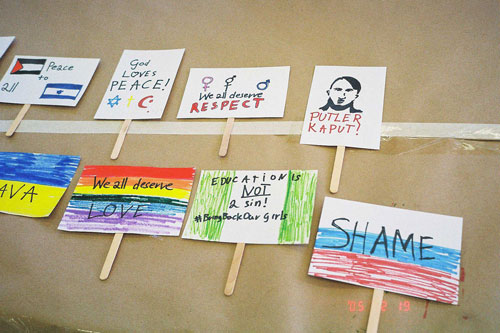 Peace
to
all
God
LOVES
PEACE!
We all deserve
RESPECT
PUTLER
KAPUT!
AVA
We all deserve
LOVE
EDUCATION IS
NOT
a sin!
#BringBackOurGirls
SHAME